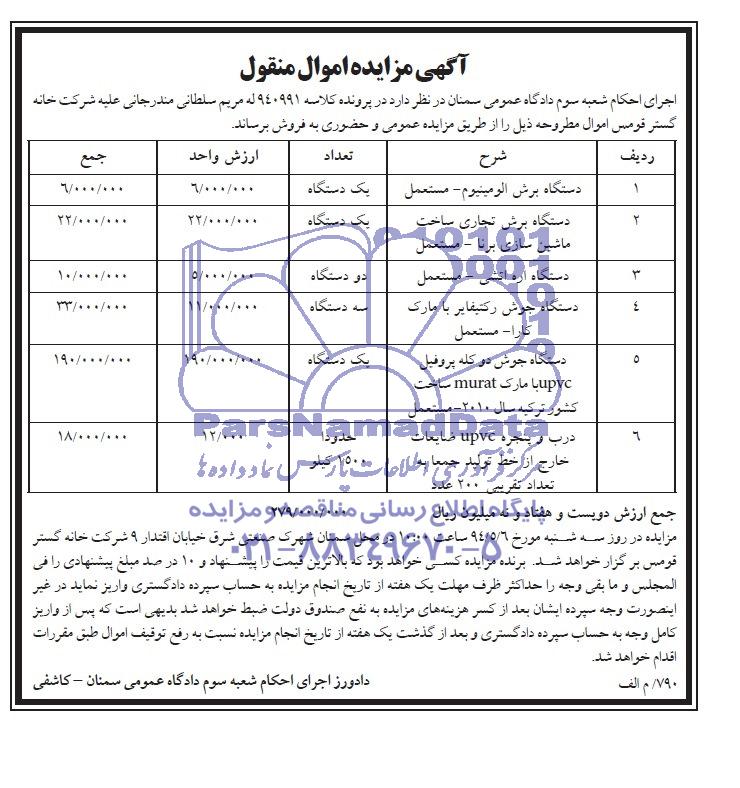 آگهی مزایده اموال منقول
اجرای احکام شعبه سوم دادگاه عمومی سمنان در نظر دارد در پرونده کلاسه ۹۴۰۹۹۱ له مریم سلطانی مندرجانی علیه شرکت خانه
گستر قومس اموال مطروحه ذیل را از طریق مزایده عمومی و حضوری به فروش برساند.
ردیف شرح تعداد ارزش واحد جمع
۱ دستگاه برش الومینیوم- مستعمل یک دستگاه ۶/۰۰۰/۰۰۰ ۶/۰۰۰/۰۰۰
۲ دستگاه برش تجاری ساخت یک دستگاه ۲۲/۰۰۰/۰۰۰ ۲۲/۰۰۰/۰۰۰
ماشین سازی برنا - مستعمل
۳ دستگاه اره آتشی - مستعمل دو دستگاه ۵/۰۰۰/۰۰۰ ۱۰/۰۰۰/۰۰۰
٤ دستگاه جوش رکتیفایر با مارک سه دستگاه ۱۱/۰۰۰/۰۰۰ ۳۳/۰۰۰/۰۰۰
کارا- مستعمل
۵ دستگاه جوش دو کله پروفیل یک دستگاه ۱۹۰/۰۰۰/۰۰۰ ۱۹۰/۰۰۰/۰۰۰
upvcبا مارک murat ساخت
کشور ترکیه سال ۲۰۱۰-مستعمل
۶ درب و پنجره upvc ضایعات حدودا ۱۲/۰۰۰ ۱۸/۰۰۰/۰۰۰
خارج از خط تولید جمعا به ۱۵۰۰ کیلو
تعداد تقریبی ۲۰۰ عدد
ParsNamadData
مرکز فرآوری اطلاعات پارس نماد داده ها
پایگاه اطلاع رسانی مناقصه و مزایده
جمع ارزش دویست و هفتاد و نه میلیون ریال ۲۷۹/۰۰۰/۰۰۰
مزایده در روز سه شنبه مورخ ۹۴/۵/۶ ساعت ۱۰:۰۰ در محل سمنان شهرک صنعتی شرق خیابان اقتدار ۹ شرکت خانه گستر
۰۲۱-۸۸۳۴۹۶۷۰-۵
قومس بر گزار خواهد شد. برنده مزایده کسی خواهد بود که بالاترین قیمت را پیشنهاد و ۱۰ در صد مبلغ پیشنهادی را فی
المجلس و ما بقی وجه را حداکثر ظرف مهلت یک هفته از تاریخ انجام مزایده به حساب سپرده دادگستری واریز نماید در غیر
اینصورت وجه سپرده ایشان بعد از کسر هزینه‌های مزایده به نفع صندوق دولت ضبط خواهد شد بدیهی است که پس از واریز
کامل وجه به حساب سپرده دادگستری و بعد از گذشت یک هفته از تاریخ انجام مزایده نسبت به رفع توقیف اموال طبق مقررات
اقدام خواهد شد.
۷۹۰/ م الف دادورز اجرای احکام شعبه سوم دادگاه عمومی سمنان - کاشفی